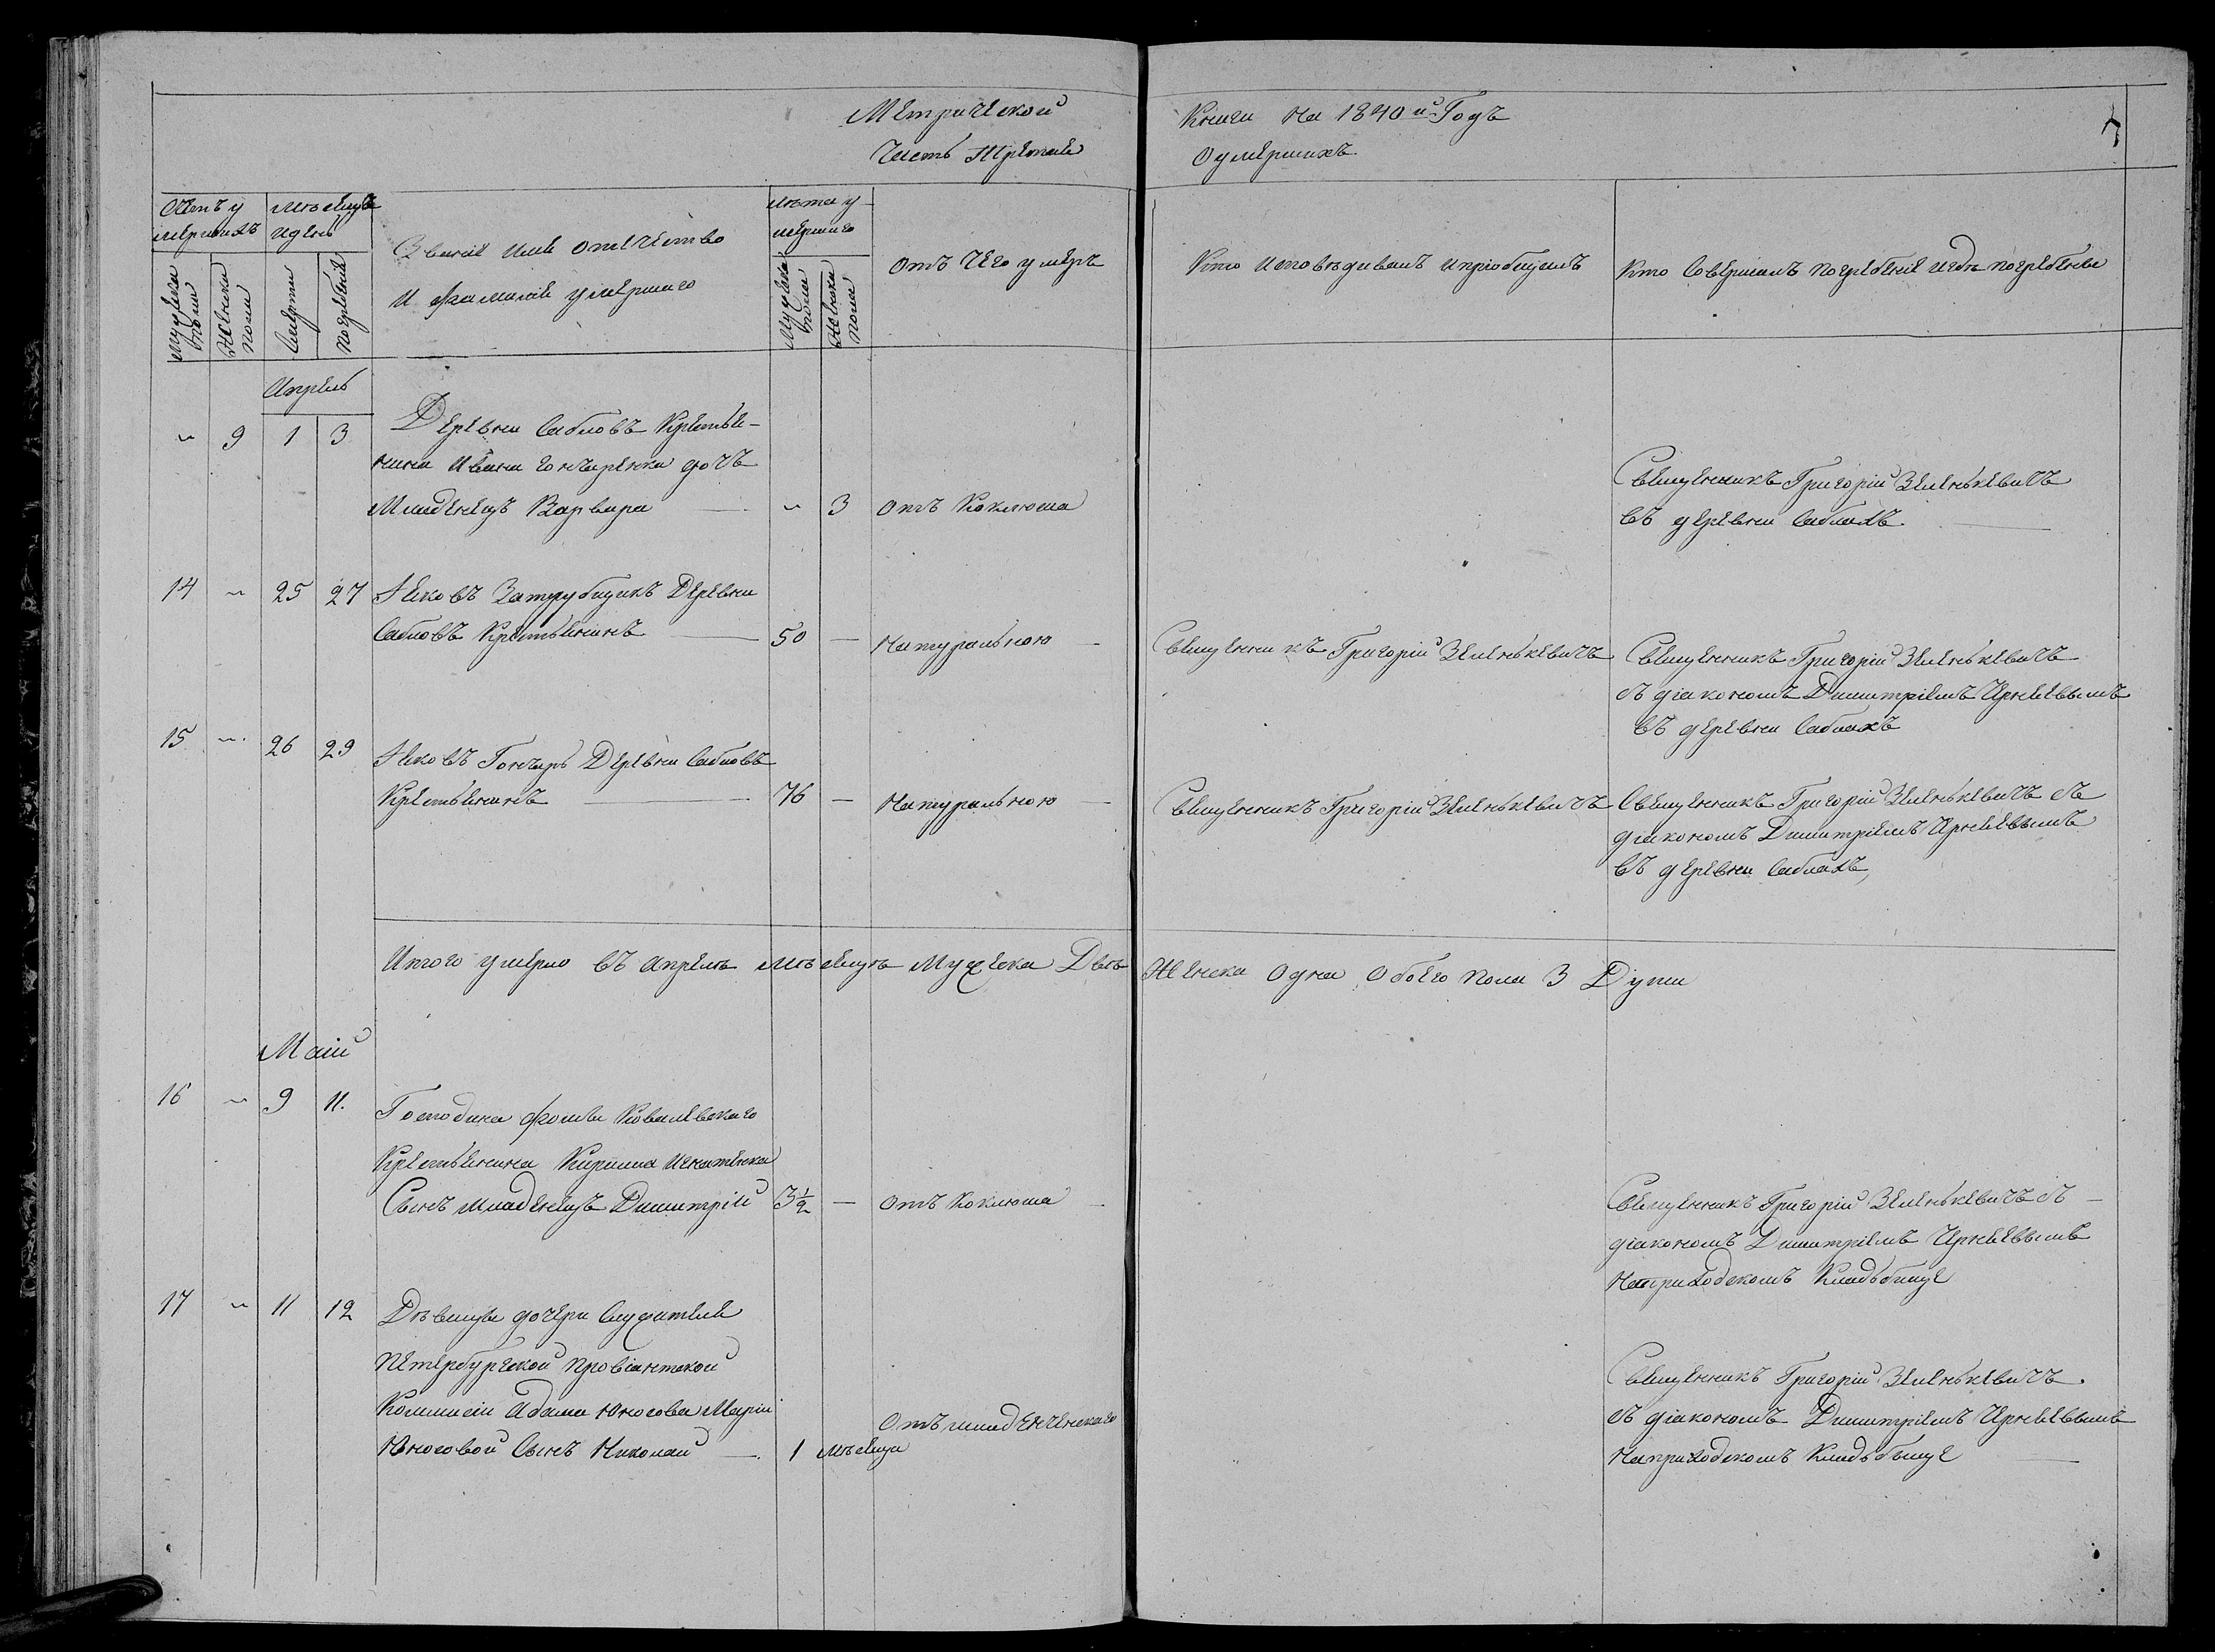 Метрической Книги на 1840й Годъ
Часть Третия О умершихъ
7
Счетъ умершихъ
Мужеска пола
Женска пола
Месяцъ и день
Смерти
Погребения
Звание имя отечество
И фамилия умершаго
Лѣта умершаго
Мужеска пола
Женска пола
Отъ чего умеръ
Кто исповѣдивалъ и пріобщалъ
Кто совершалъ погребение и гдѣ погребены
Апрель
„ 9 1 3 Деревни Сабловъ Крестья-
нина Ивана Гончаренка дочъ
Младенецъ Варвара „ 3 отъ Коклюша
Священникъ Григорій Зеленькевичъ
въ деревни Саблахъ.
14 „ 25 27 Яковъ Затрубщикъ Деревни
Сабловъ Крестьянинъ 50 — Натуральною
Священникъ Григорій Зеленькевичъ
Священникъ Григорій Зеленькевичъ
съ діакономъ Димитріемъ Чернеевымъ
въ деревни Саблахъ
15 „ 26 29 Яковъ Гончаръ Деревни Сабловъ
Крестьянинъ 76 — Натуральною
Священникъ Григорій Зеленькевичъ
Священникъ Григорій Зеленькевичъ съ
діакономъ Димитріемъ Чернеевымъ
въ деревни Саблахъ,
Итого умерло въ апрелѣ мѣсяцѣ Мужеска Двѣ Женска Одна Обоего пола 3 Души
Маій
16 „ 9 11. Господина Фомы Ковалевскаго
Крестьянина Кирила Игнатенка
Сынъ младенецъ Димитрій 3½ — отъ Коклюша
Священникъ Григорій Зеленькевичъ съ
діакономъ Димитріемъ Чернеевымъ
На приходскомъ Кладьбище
17 „ 11 12 Дѣвицы дочери Служителя
Петербурской провіантской
Коммисіи Адама Юносова Маріи
Юносовой Сынъ Николай 1 мѣсяца
Отъ младенческаго
Священникъ Григорій Зеленькевичъ.
съ діакономъ Димитріемъ Чернеевымъ
На приходскомъ Кладьбище